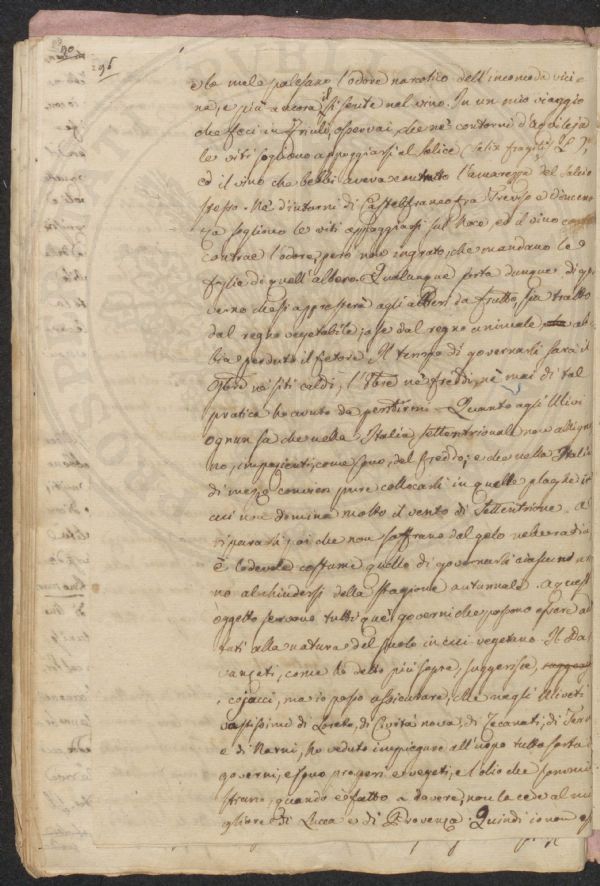 90
295
e le mele palesano l'odore narcotico dell'incomoda vici
na, e più ancora si sente nel vino. In un mio viaggio
che feci in Friuli, osservai, che ne' contorni d'Aquileja
le viti sogliono appoggiarsi al salice, Salix fragilis L.
ed il vino che bebbi aveva contratto l'amarezza del Salcio
stesso. Ne' d'intorni di Castelfranco fra Treviso e Vicenza
sogliono le viti appoggiarsi sul Noce, ed il vino
contrae l'odore, però non ingrato, che mandano le
foglie di quell'albero. Qualunque sorta dunque di go
verno che si appresserà agli alberi da frutto, sia tratto
dal regno vegetabile, o sia dal regno animale ab
bia perduto il fetore. Il tempo di governarli sarà il
9bre ne' siti caldi, l'8bre ne' freddi, nè mai di tal
pratica ho avuto da pentirmi. Quanto agli Ulivi
ognun sa che nella Italia settentrionale non alligna
no, impazienti, come sono, del freddo; e che nella Italia
di mezzo convien pure collocarli in quelle plaghe in
cui non domina molto il vento di Settentrione. A
ripararli poi che non soffrano dal gelo nelle radici
è lodevole costume quello di governarli ciascun an
no al chiudersi della stagione autunnale. A quest'
oggetto servono tutti que' governi che possono essere adat
tati alla natura del suolo in cui vegetano. Il Da
vanzati, come ho detto più sopra, suggerisce,
cojacci, ma io posso assicurare, che negli Uliveti
vastissimi di Loreto, di Civita nova, di Recanati, di Terni
e di Narni, ho veduto impiegare all'uopo tutta sorta di
governi, e sono prosperi e vegeti, e l'olio che sommini
strano, quando è fatto a dovere, non la cede al mi
gliore di Lucca e di Provenza. Quindi io non